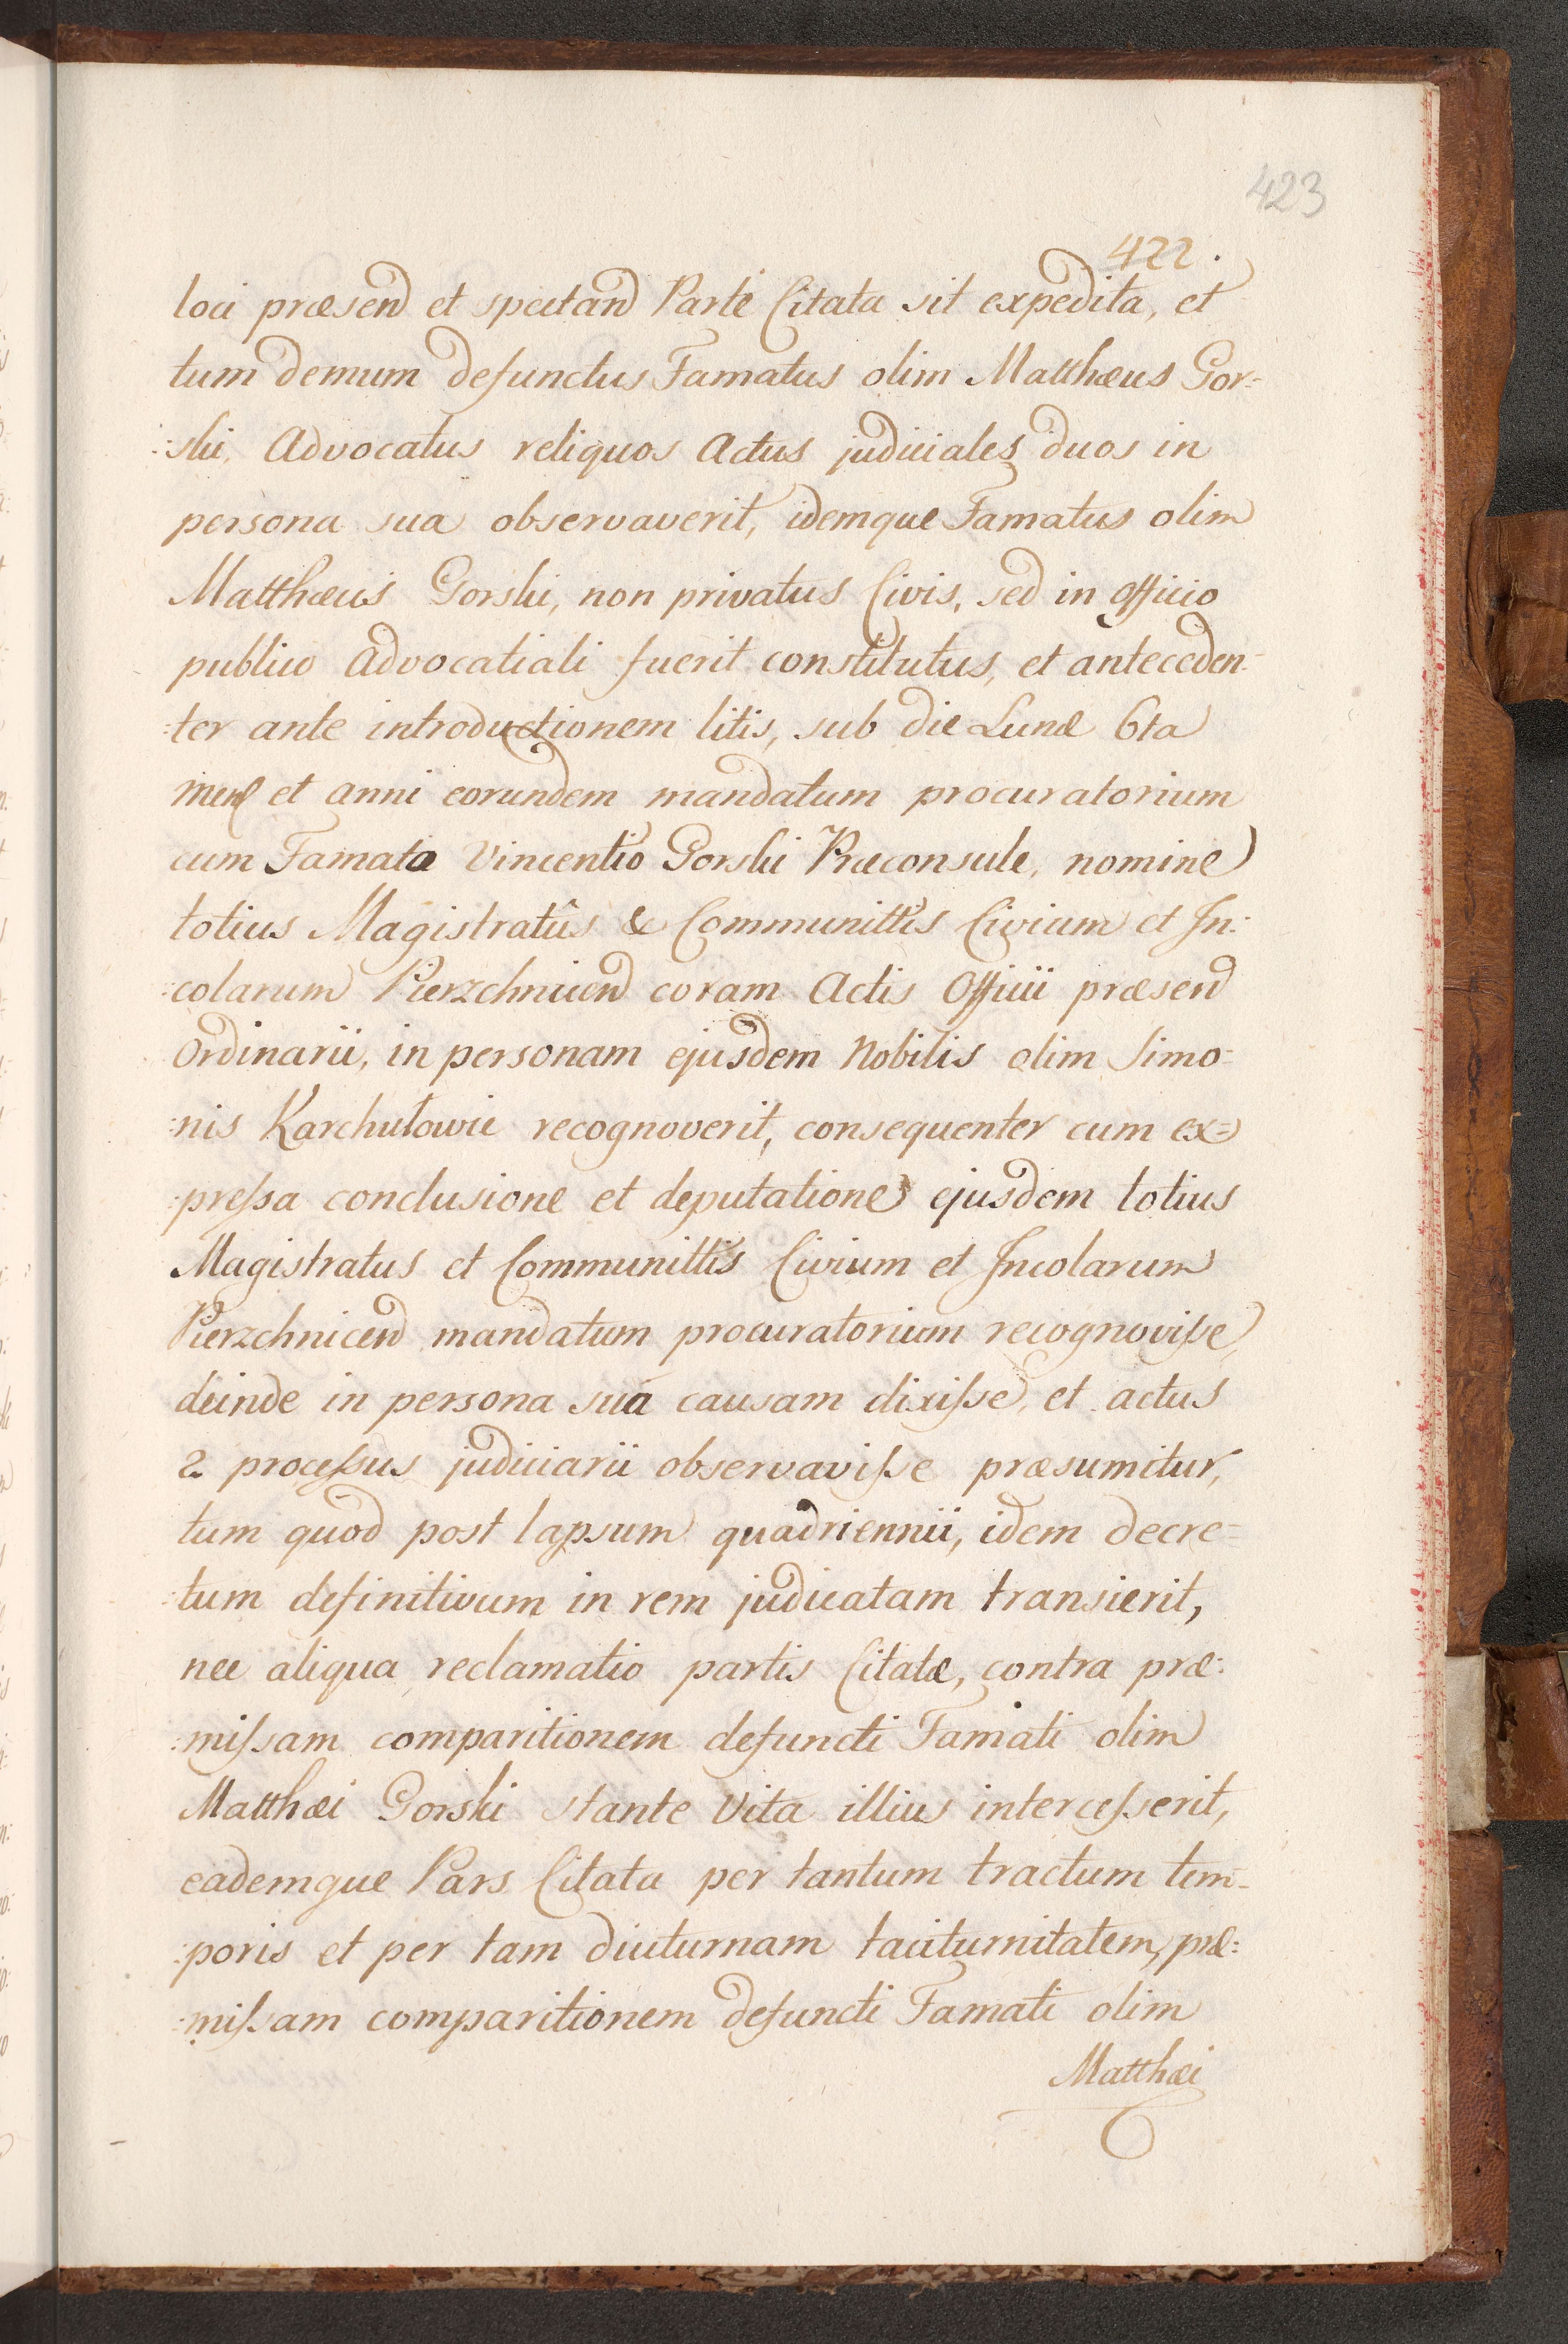 423
422.
loci præsend et spectand Parte Citata sit expedita, et
tum demum defunctus Famatus olim Matthæus Gor=
:ski, Advocatus reliquos Actus judiciales duos in
persona sua observaverit, idemque Famatus olim
Matthæus Gorski, non privatus Civis, sed in officio
publico Advocatiali fuerit constitutus, et anteceden-
:ter ante introductionem litis, sub die Lunæ 6ta
mens et anni eorundem mandatum procuratorium
cum Famato Vincentio Gorski Præconsule, nomine
totius Magistratûs & Communittis Civium et In:
:colarum Pierzchnicend coram Actis Officii præsend
Ordinarii, in personam ejusdem Nobilis olim Simo=
:nis Karchutowic recognoverit, consequenter cum ex=
:pressa conclusione et deputatione ejusdem totius
Magistratus et Communittis Civium et Incolarum
Pierzchnicend mandatum procuratorium recognovisse,
deinde in persona sua causam dixisse, et actus
2. processus judiciarii observavisse præsumitur,
tum quod post lapsum quadriennii, idem decre=
:tum definitivum in rem judicatam transierit,
nec aliqua reclamatio partis Citatæ, contra præ:
:missam comparitionem defuncti Famati olim
Matthæi Gorski stante vita illius intercesserit,
eademque Pars Citata per tantum tractum tem-
:poris et per tam diuturnam taciturnitatem, præ:
:missam comparitionem defuncti Famati olim
Matthæi